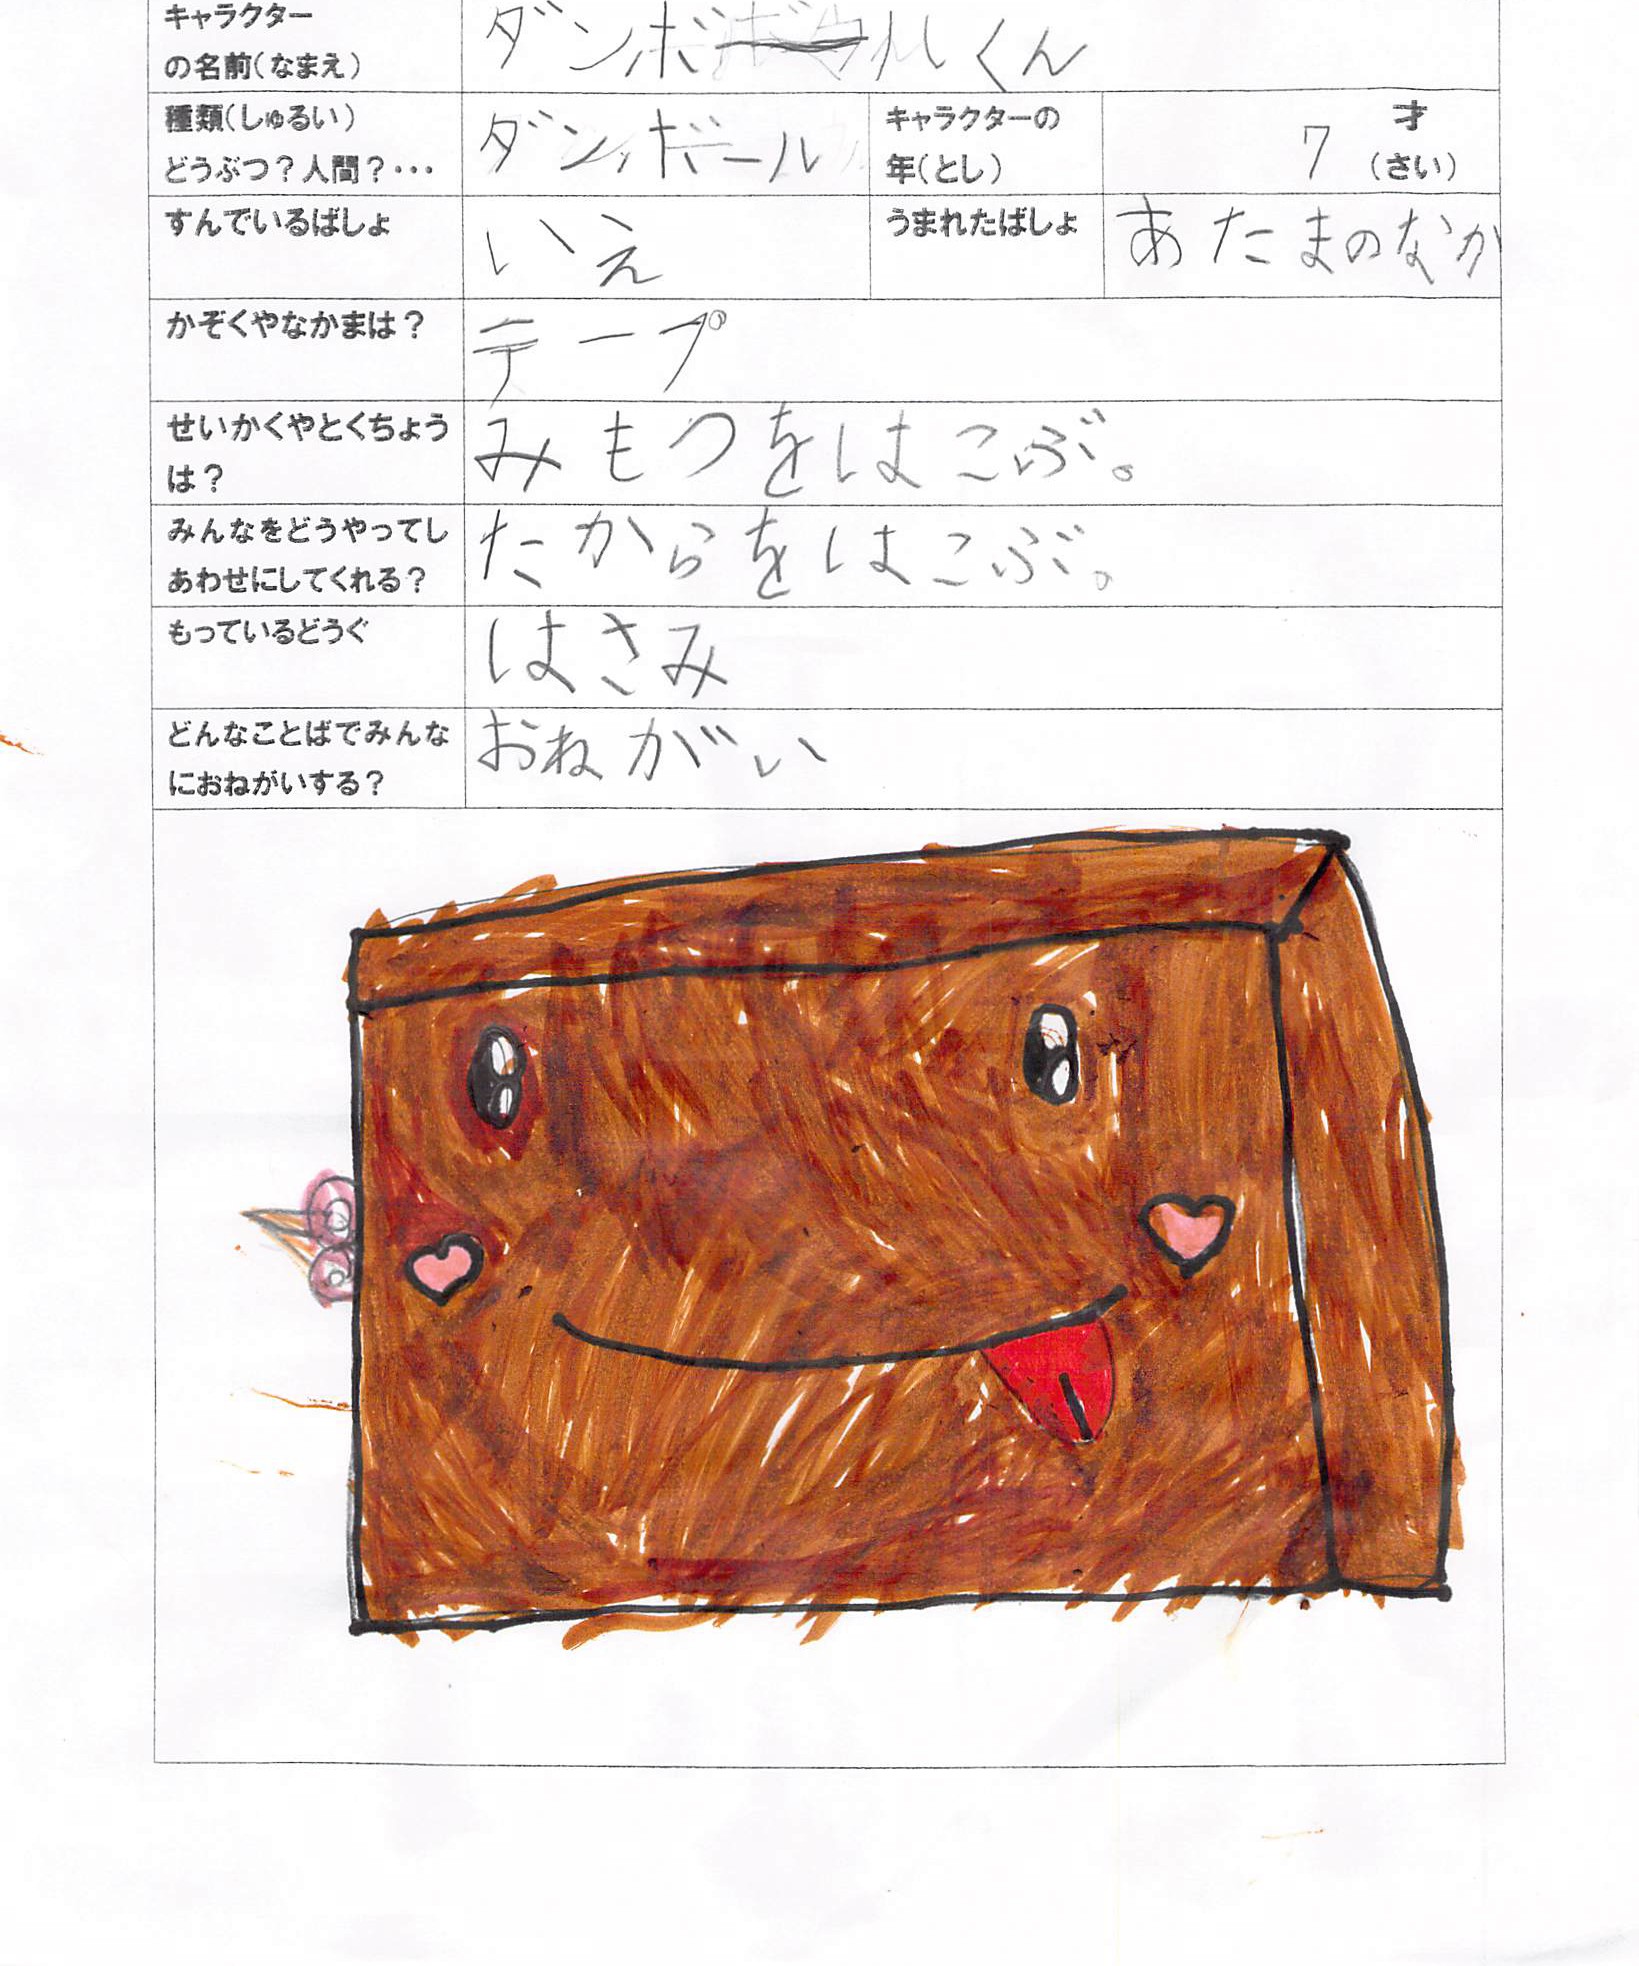 キャラクター
の名前(なまえ)
ダンボールくん
種類(しゅるい)
どうぶつ?人間?・・・
ダンボール
キャラクターの
年(とし)
7
才
(さい)
すんでいるばしょ
いえ
うまれたばしょ
あたまのなか
かぞくやなかまは?
テープ
せいかくやとくちょう
は?
みもつをはこぶ。
みんなをどうやってし
あわせにしてくれる?
たからをはこぶ。
もっているどうぐ
はさみ
どんなことばでみんな
におねがいする?
おねがい